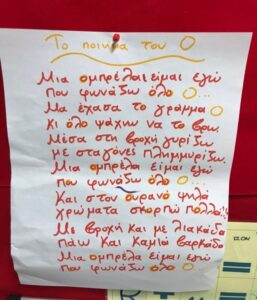 Το ποιημα του Ο
Μια ομπρέλα είμαι εγώ
που φωνάζω όλο Ο...
Μα έχασα το γράμμα Ο
κι όλο ψάχνω να το βρω.
Μέσα στη βροχή γυρίζω
με σταγόνες πλημμυρίζω.
Μια ομπρέλα είμαι εγώ
που φωνάζω όλο Ο...
Και στον ουρανό ψηλά
χρώματα σκορπώ πολλά!!
Με βροχή και με λιακάδα
πάω και καμιά βαρκάδα
Μια ομπρέλα είμαι εγώ
που φωνάζω όλο Ο